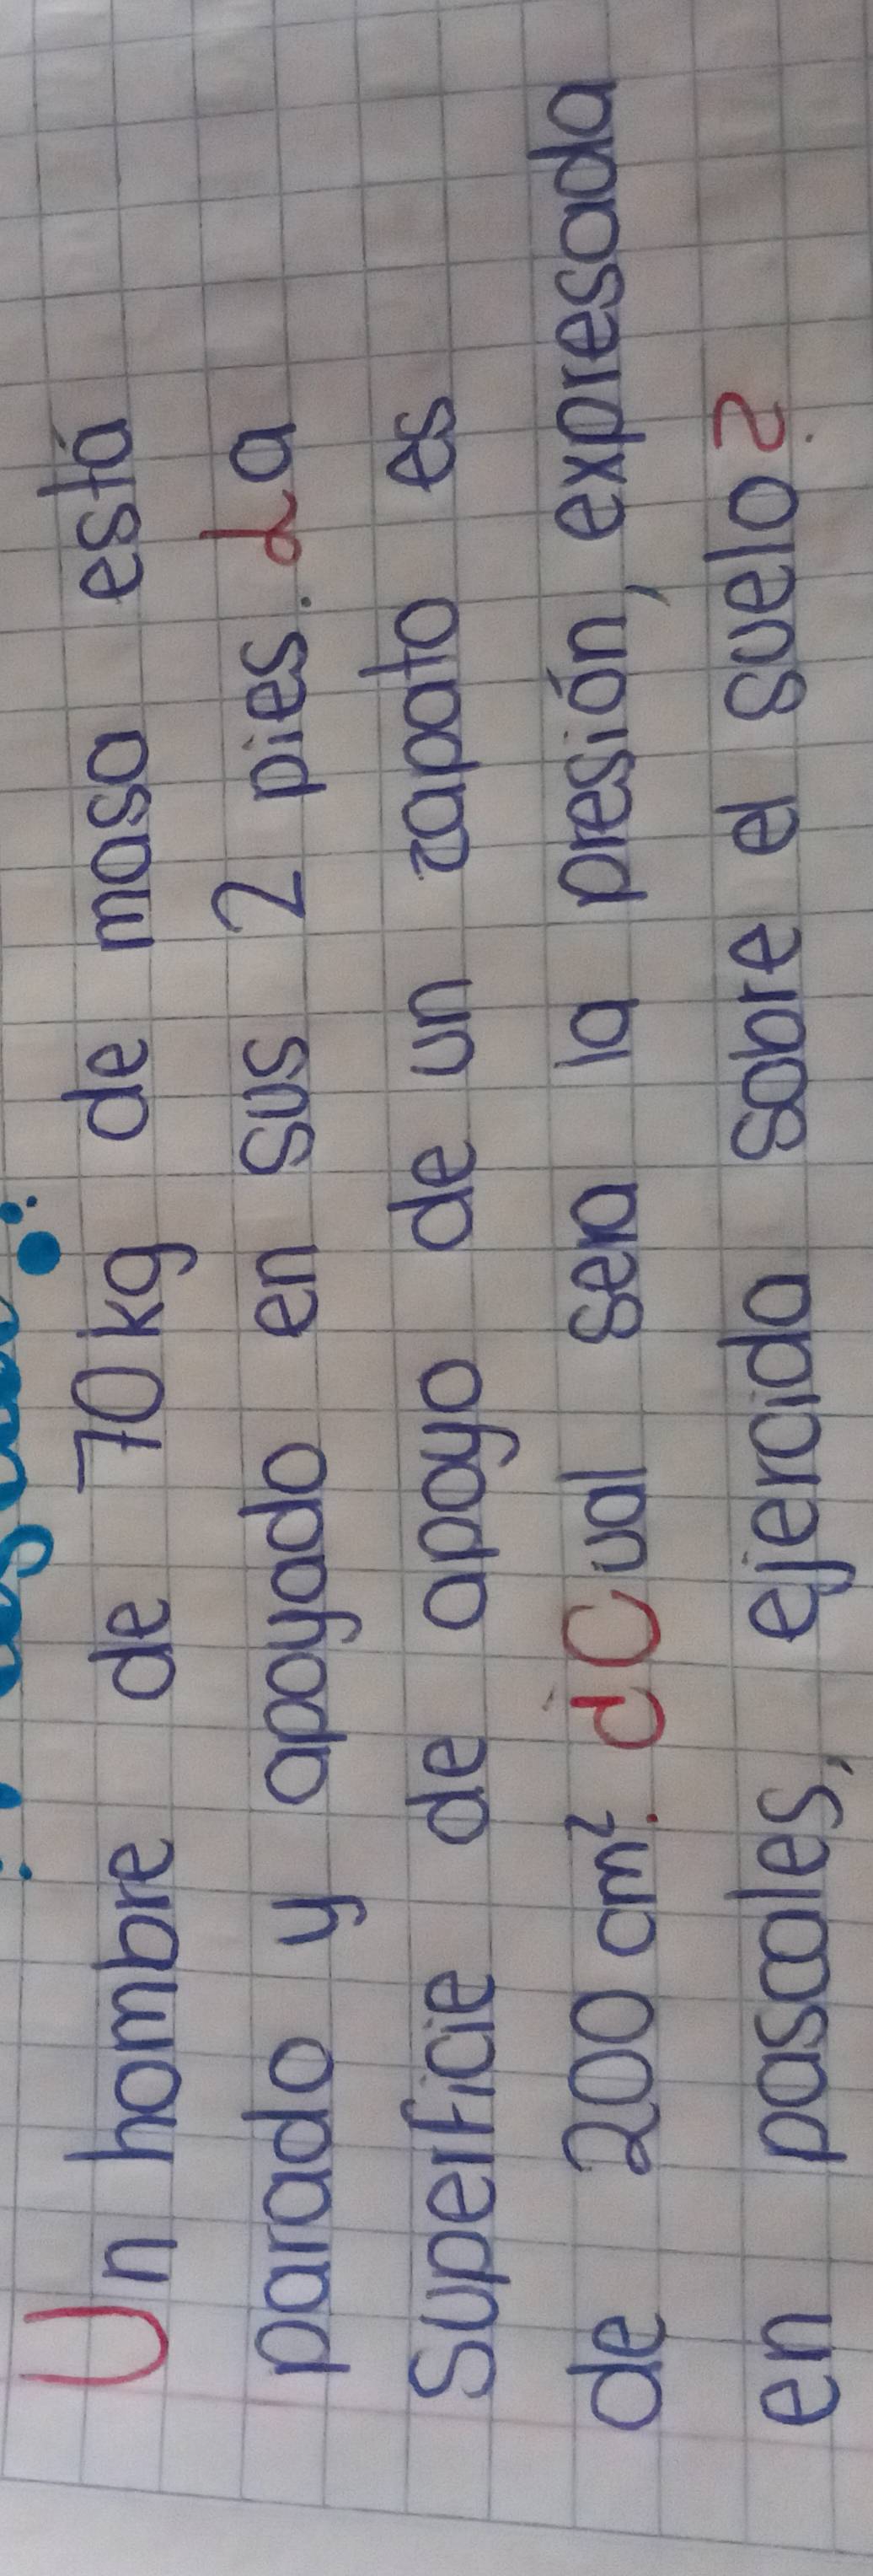 Un hombre de 70 kg de masa está
parado y apoyado en sus 2 pies. La
superficie de apoyo de un zapato es
de 200 cm². ¿Cual sera la presión, expresada
en pascales, ejercida sobre el suelo?